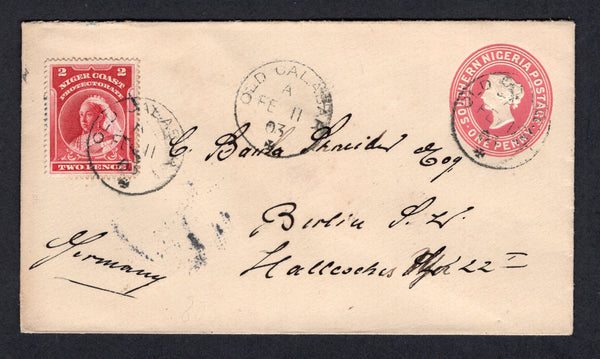 2 2
NIGER COAST
PROTECTORATE
TWO PENCE
OLD CALABAR
A
FE 11
03
SOUTHERN NIGERIA POSTAGE
ONE PENNY
OLD CALABAR
A
11
C. Banza Schneider Esq
Berlin S.W.
Hallesches 22 I
Germany